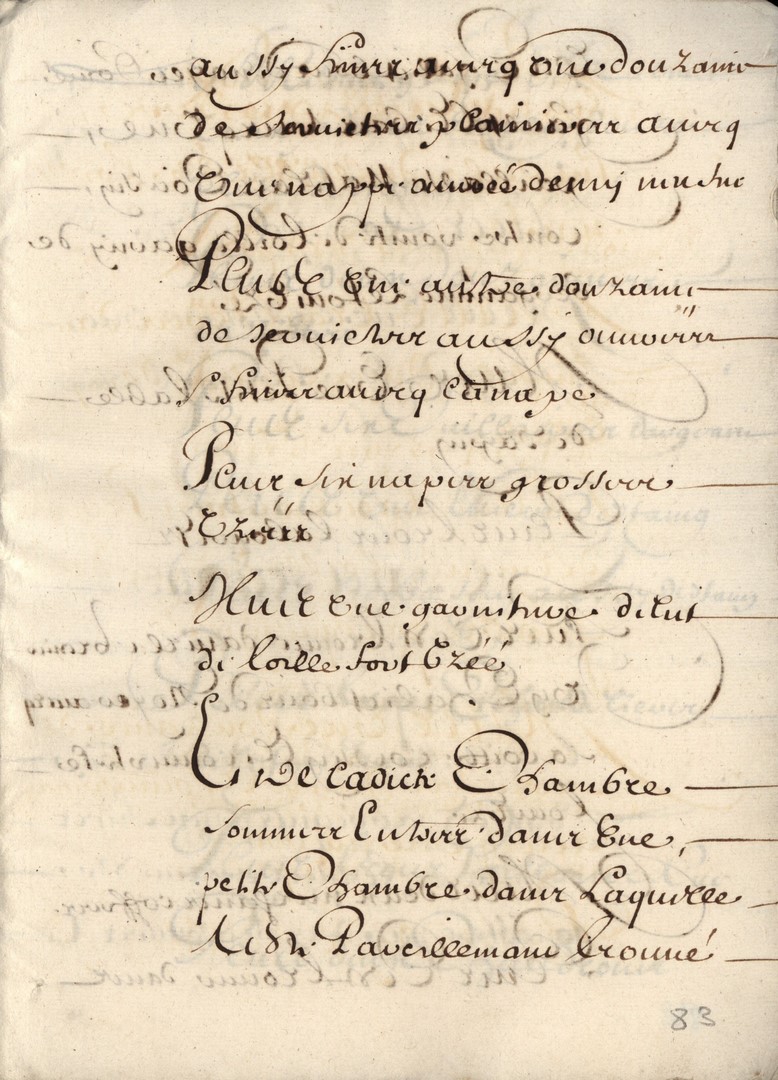 aussy finne avecq une douzaine
de serviettes plainierre avecq
une nappe damacé demy
Plus une autre douzaine
de serviettes aussy ouvrrée
finne avecq la nape
Plus six nappes grossere
uzéés
Plus une garniture de lit
de toille fort uzéé
Et de ladicte Chambre
sommes entrés dans une
petite Chambre dans laquelle
a esté pareillemant trouvé
83